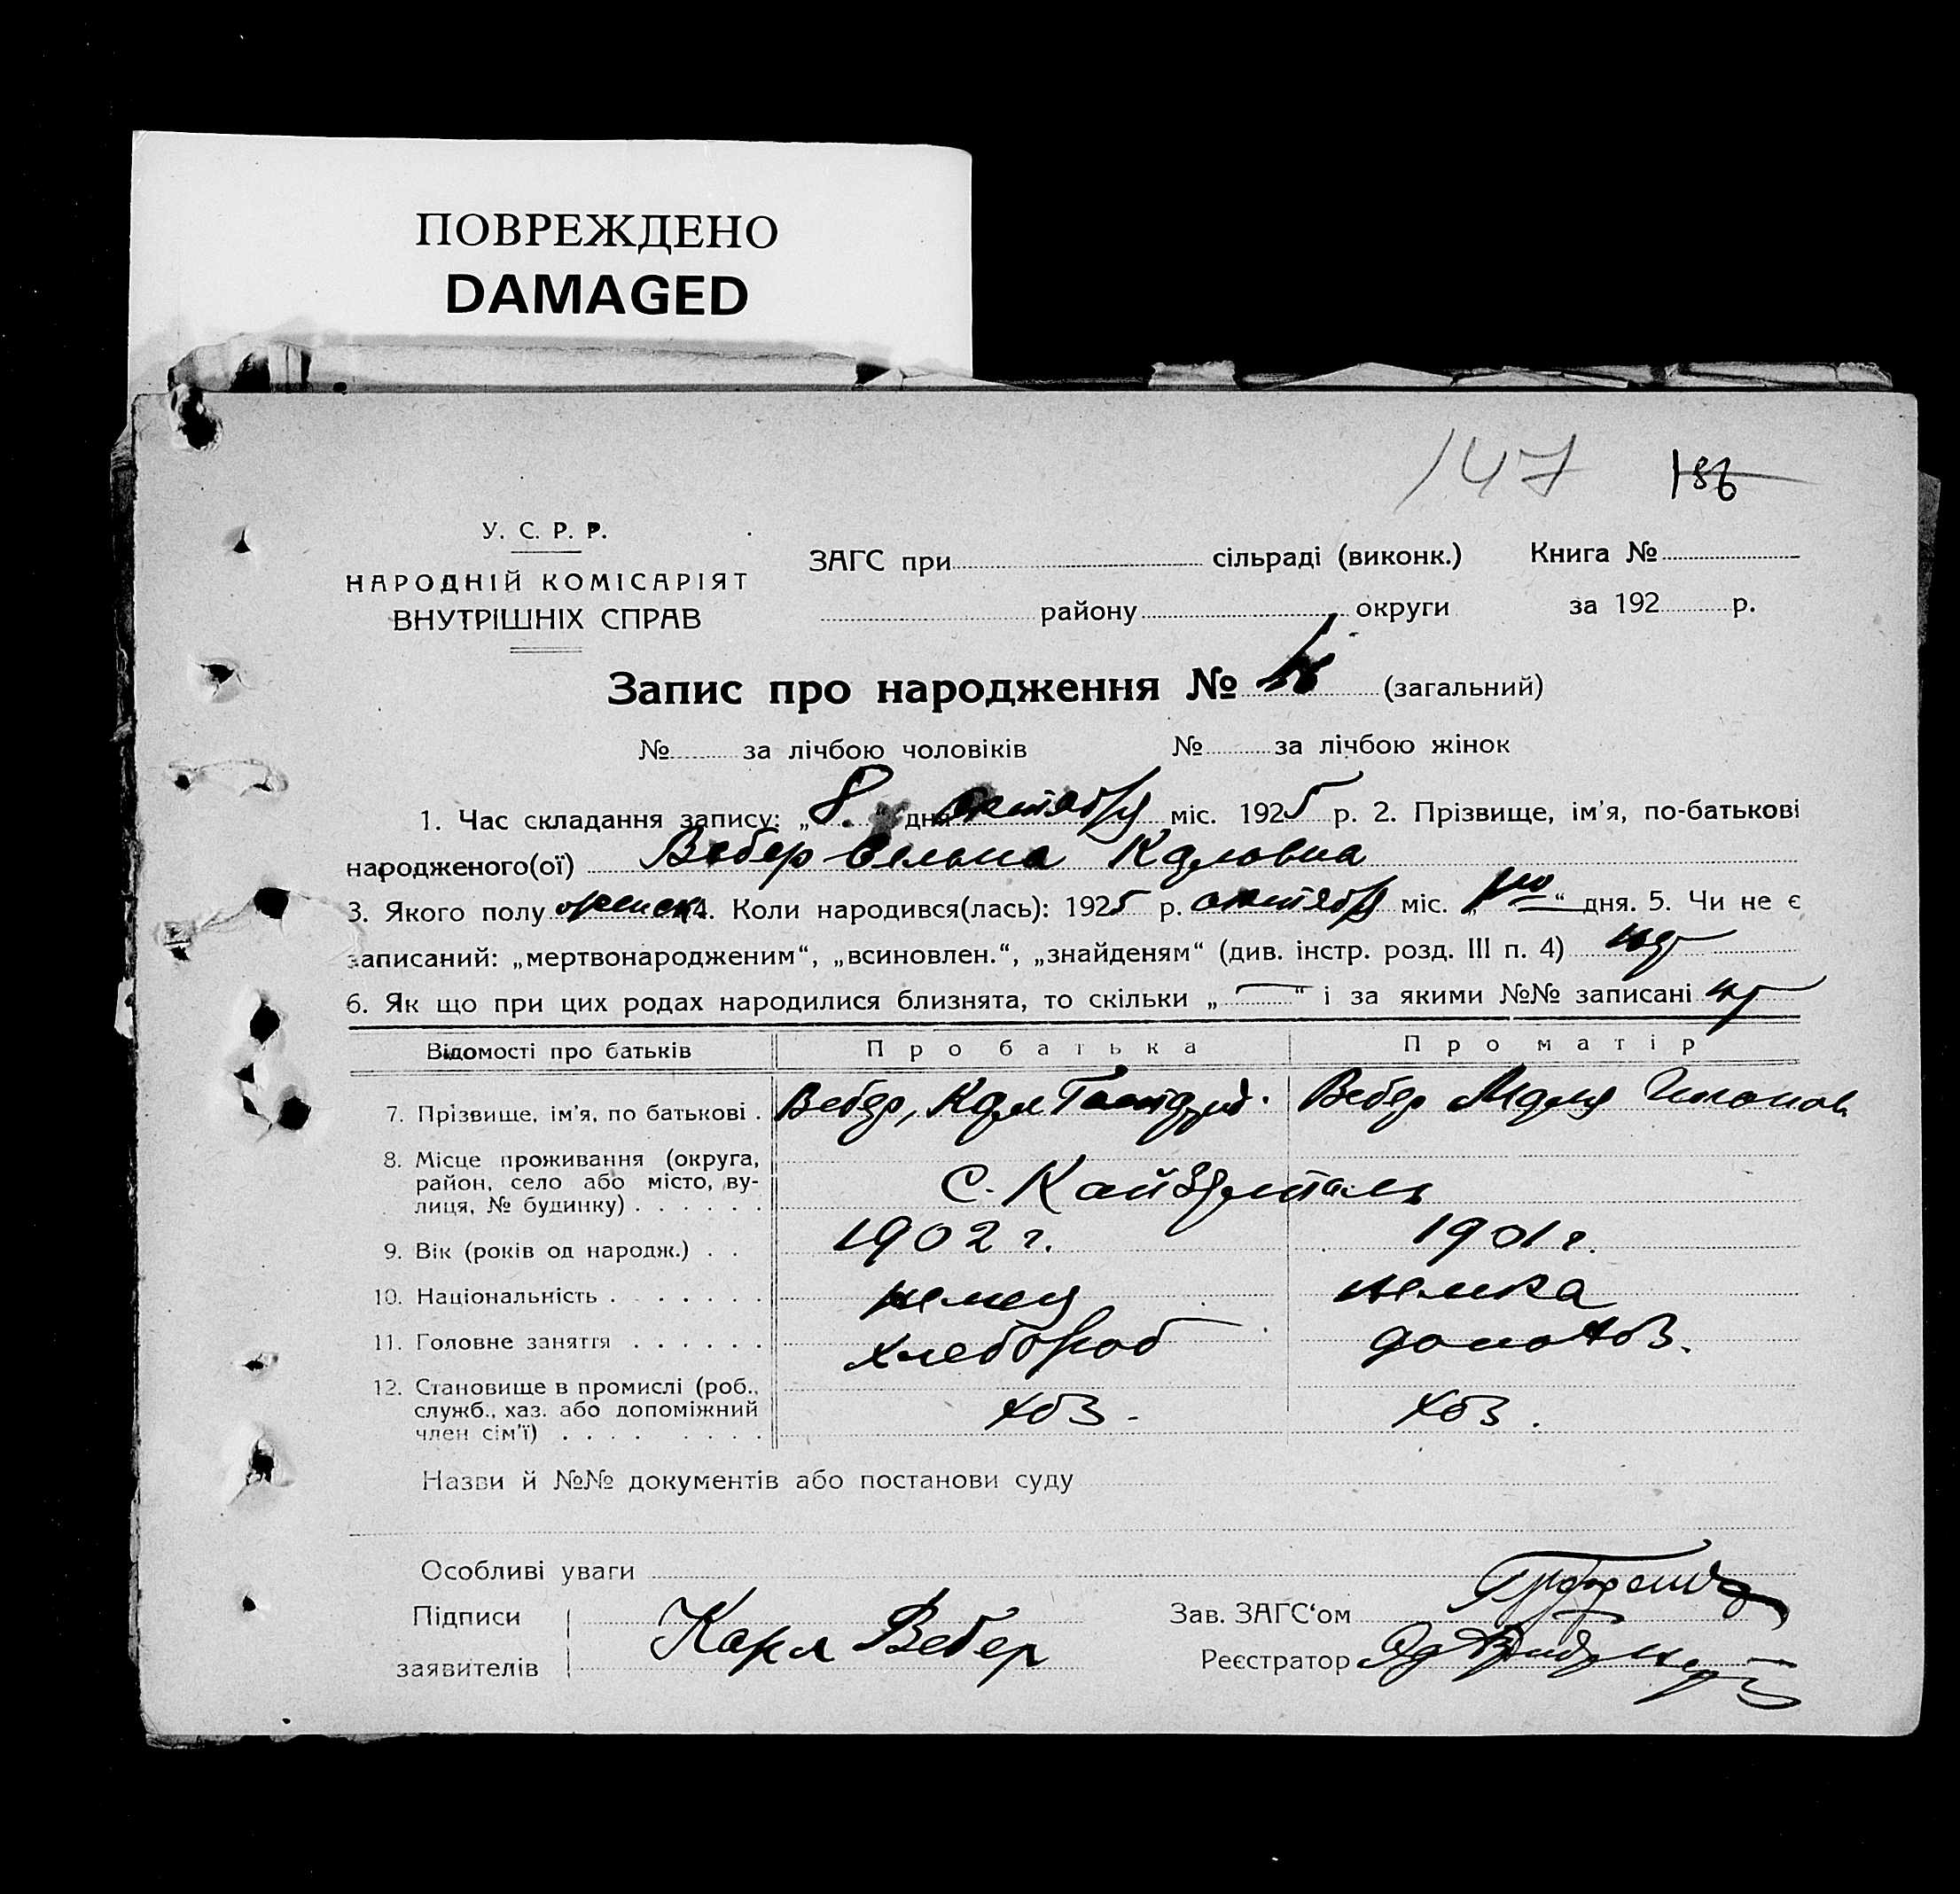 ПОВРЕЖДЕНО
DAMAGED
147 186
У. С. Р. Р.
НАРОДНІЙ КОМІСАРІЯТ
ВНУТРІШНІХ СПРАВ
ЗАГС при сільраді (виконк.) Книга №
району округи за 192 р.
Запис про народження № (загальний)
№ за лічбою чоловіків № за лічбою жінок
1. Час складання запису: „8.“ дня октября міс. 1925 р. 2. Прізвище, ім'я, по-батькові
народженого(ої) Вебер Карловна
3. Якого полу женск. 4. Коли народився(лась): 1925 р. октября міс. „ “ дня. 5. Чи не є
записаний: „мертвонародженим“, „всиновлен.“, „знайденям“ (див. інстр. розд. III п. 4) нет
6. Як що при цих родах народилися близнята, то скільки „—“ і за якими №№ записані нет
Відомості про батьків Про батька Про матір
7. Прізвище, ім'я, по батькові . Вебер, Карл Вебер
8. Місце проживання (округа,
район, село або місто, ву-
лиця, № будинку) . . . . . . С. Кайзерталь
9. Вік (років од народж.) . . 1902 г. 1901 г.
10. Національність . . . . . . . немец немка
11. Головне заняття . . . . . . хлебороб домохоз.
12. Становище в промислі (роб.,
служб., хаз. або допоміжний
член сім'ї) . . . . . . . . . хоз. хоз.
Назви й №№ документів або постанови суду
Особливі уваги
Підписи
заявителів Карл Вебер
Зав. ЗАГС‘ом
Реєстратор